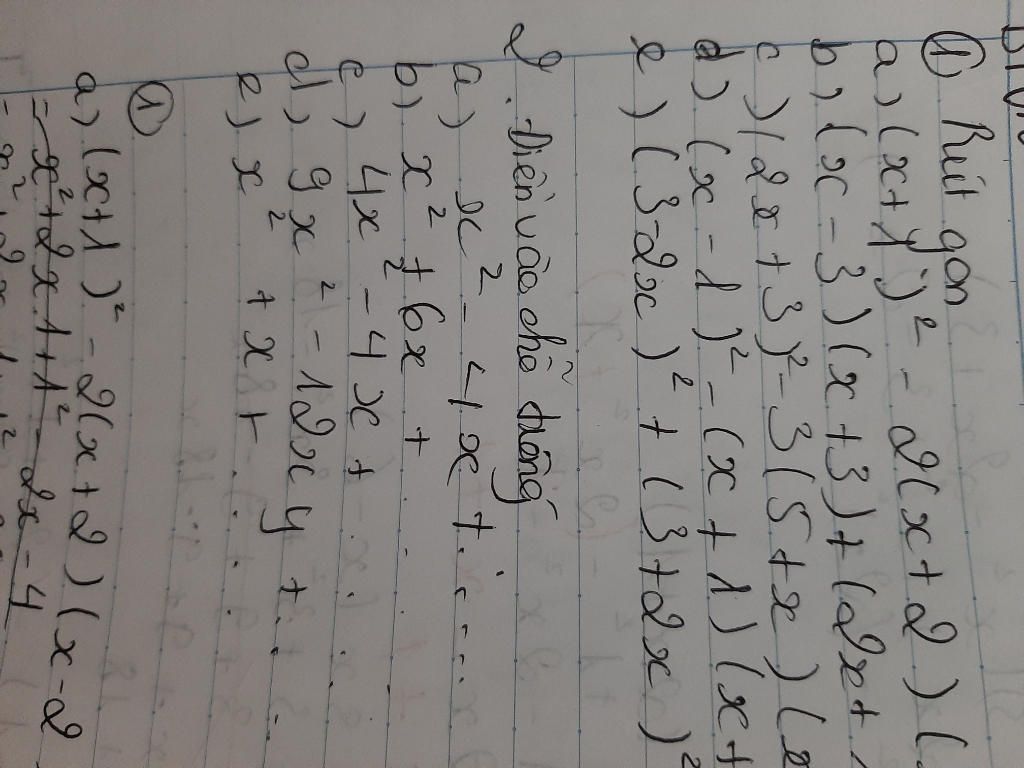 ① Rút gọn
a) (x+1)² - 2(x+2)(
b) (x-3)(x+3)+(2x+
c) (2x+3)² - 3(5+x)(
d) (x-1)² - (x+1)(x+
e) (3-2x)² + (3+2x)²
2. Điền vào chỗ trống
a) x² - 4x + .....
b) x² + 6x + ...
c) 4x² - 4x + ...
d) 9x² - 12xy + ...
e) x² + x + ...
①
a) (x+1)² - 2(x+2)(x-2
= x²+2x.1+1² - 2x - 4